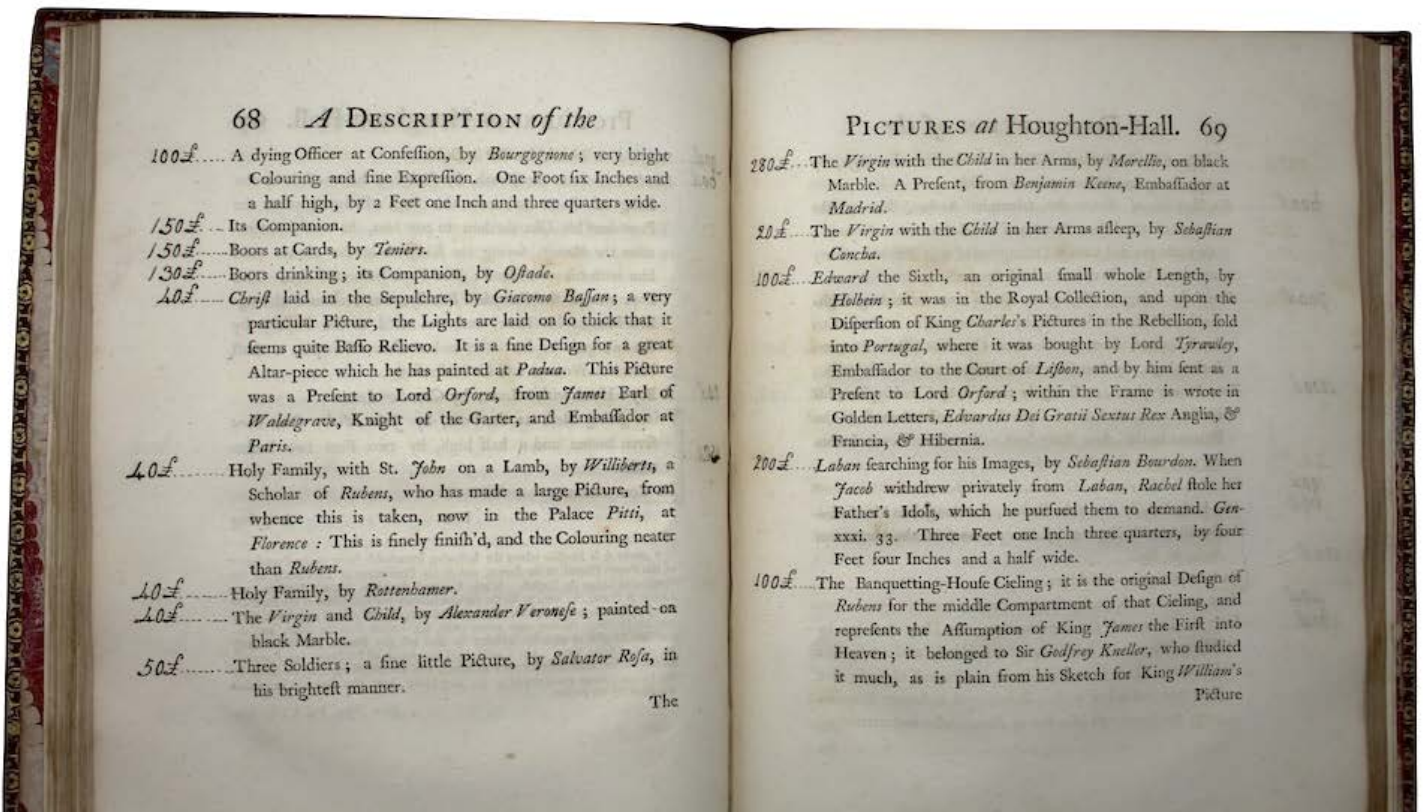 68 A DESCRIPTION of the
100£..... A dying Officer at Confeſſion, by Bourgognone; very bright
Colouring and fine Expreſſion. One Foot ſix Inches and
a half high, by 2 Feet one Inch and three quarters wide.
150£... Its Companion.
150£......Boors at Cards, by Teniers.
130£..... Boors drinking; its Companion, by Oſtade.
40£..... Chriſt laid in the Sepulchre, by Giacomo Baſſan; a very
particular Picture, the Lights are laid on ſo thick that it
ſeems quite Baſſo Relievo. It is a fine Deſign for a great
Altar-piece which he has painted at Padua. This Picture
was a Preſent to Lord Orford, from James Earl of
Waldegrave, Knight of the Garter, and Embaſſador at
Paris.
40£....... Holy Family, with St. John on a Lamb, by Williberts, a
Scholar of Rubens, who has made a large Picture, from
whence this is taken, now in the Palace Pitti, at
Florence : This is finely finiſh'd, and the Colouring neater
than Rubens.
40£........Holy Family, by Rottenhamer.
40£........The Virgin and Child, by Alexander Veroneſe; painted on
black Marble.
50£.........Three Soldiers; a fine little Picture, by Salvator Roſa, in
his brighteſt manner.
The
PICTURES at Houghton-Hall. 69
280£...The Virgin with the Child in her Arms, by Morellio, on black
Marble. A Preſent, from Benjamin Keene, Embaſſador at
Madrid.
20£....The Virgin with the Child in her Arms aſleep, by Sebaſtian
Concha.
100£...Edward the Sixth, an original ſmall whole Length, by
Holbein; it was in the Royal Collection, and upon the
Diſperſion of King Charles's Pictures in the Rebellion, ſold
into Portugal, where it was bought by Lord Tyrawley,
Embaſſador to the Court of Liſbon, and by him ſent as a
Preſent to Lord Orford; within the Frame is wrote in
Golden Letters, Edvardus Dei Gratii Sextus Rex Anglia, &
Francia, & Hibernia.
200£....Laban ſearching for his Images, by Sebaſtian Bourdon. When
Jacob withdrew privately from Laban, Rachel ſtole her
Father's Idols, which he purſued them to demand. Gen-
xxxi. 33. Three Feet one Inch three quarters, by four
Feet four Inches and a half wide.
100£....The Banquetting-Houſe Cieling; it is the original Deſign of
Rubens for the middle Compartment of that Cieling, and
repreſents the Aſſumption of King James the Firſt into
Heaven; it belonged to Sir Godfrey Kneller, who ſtudied
it much, as is plain from his Sketch for King William's
Picture